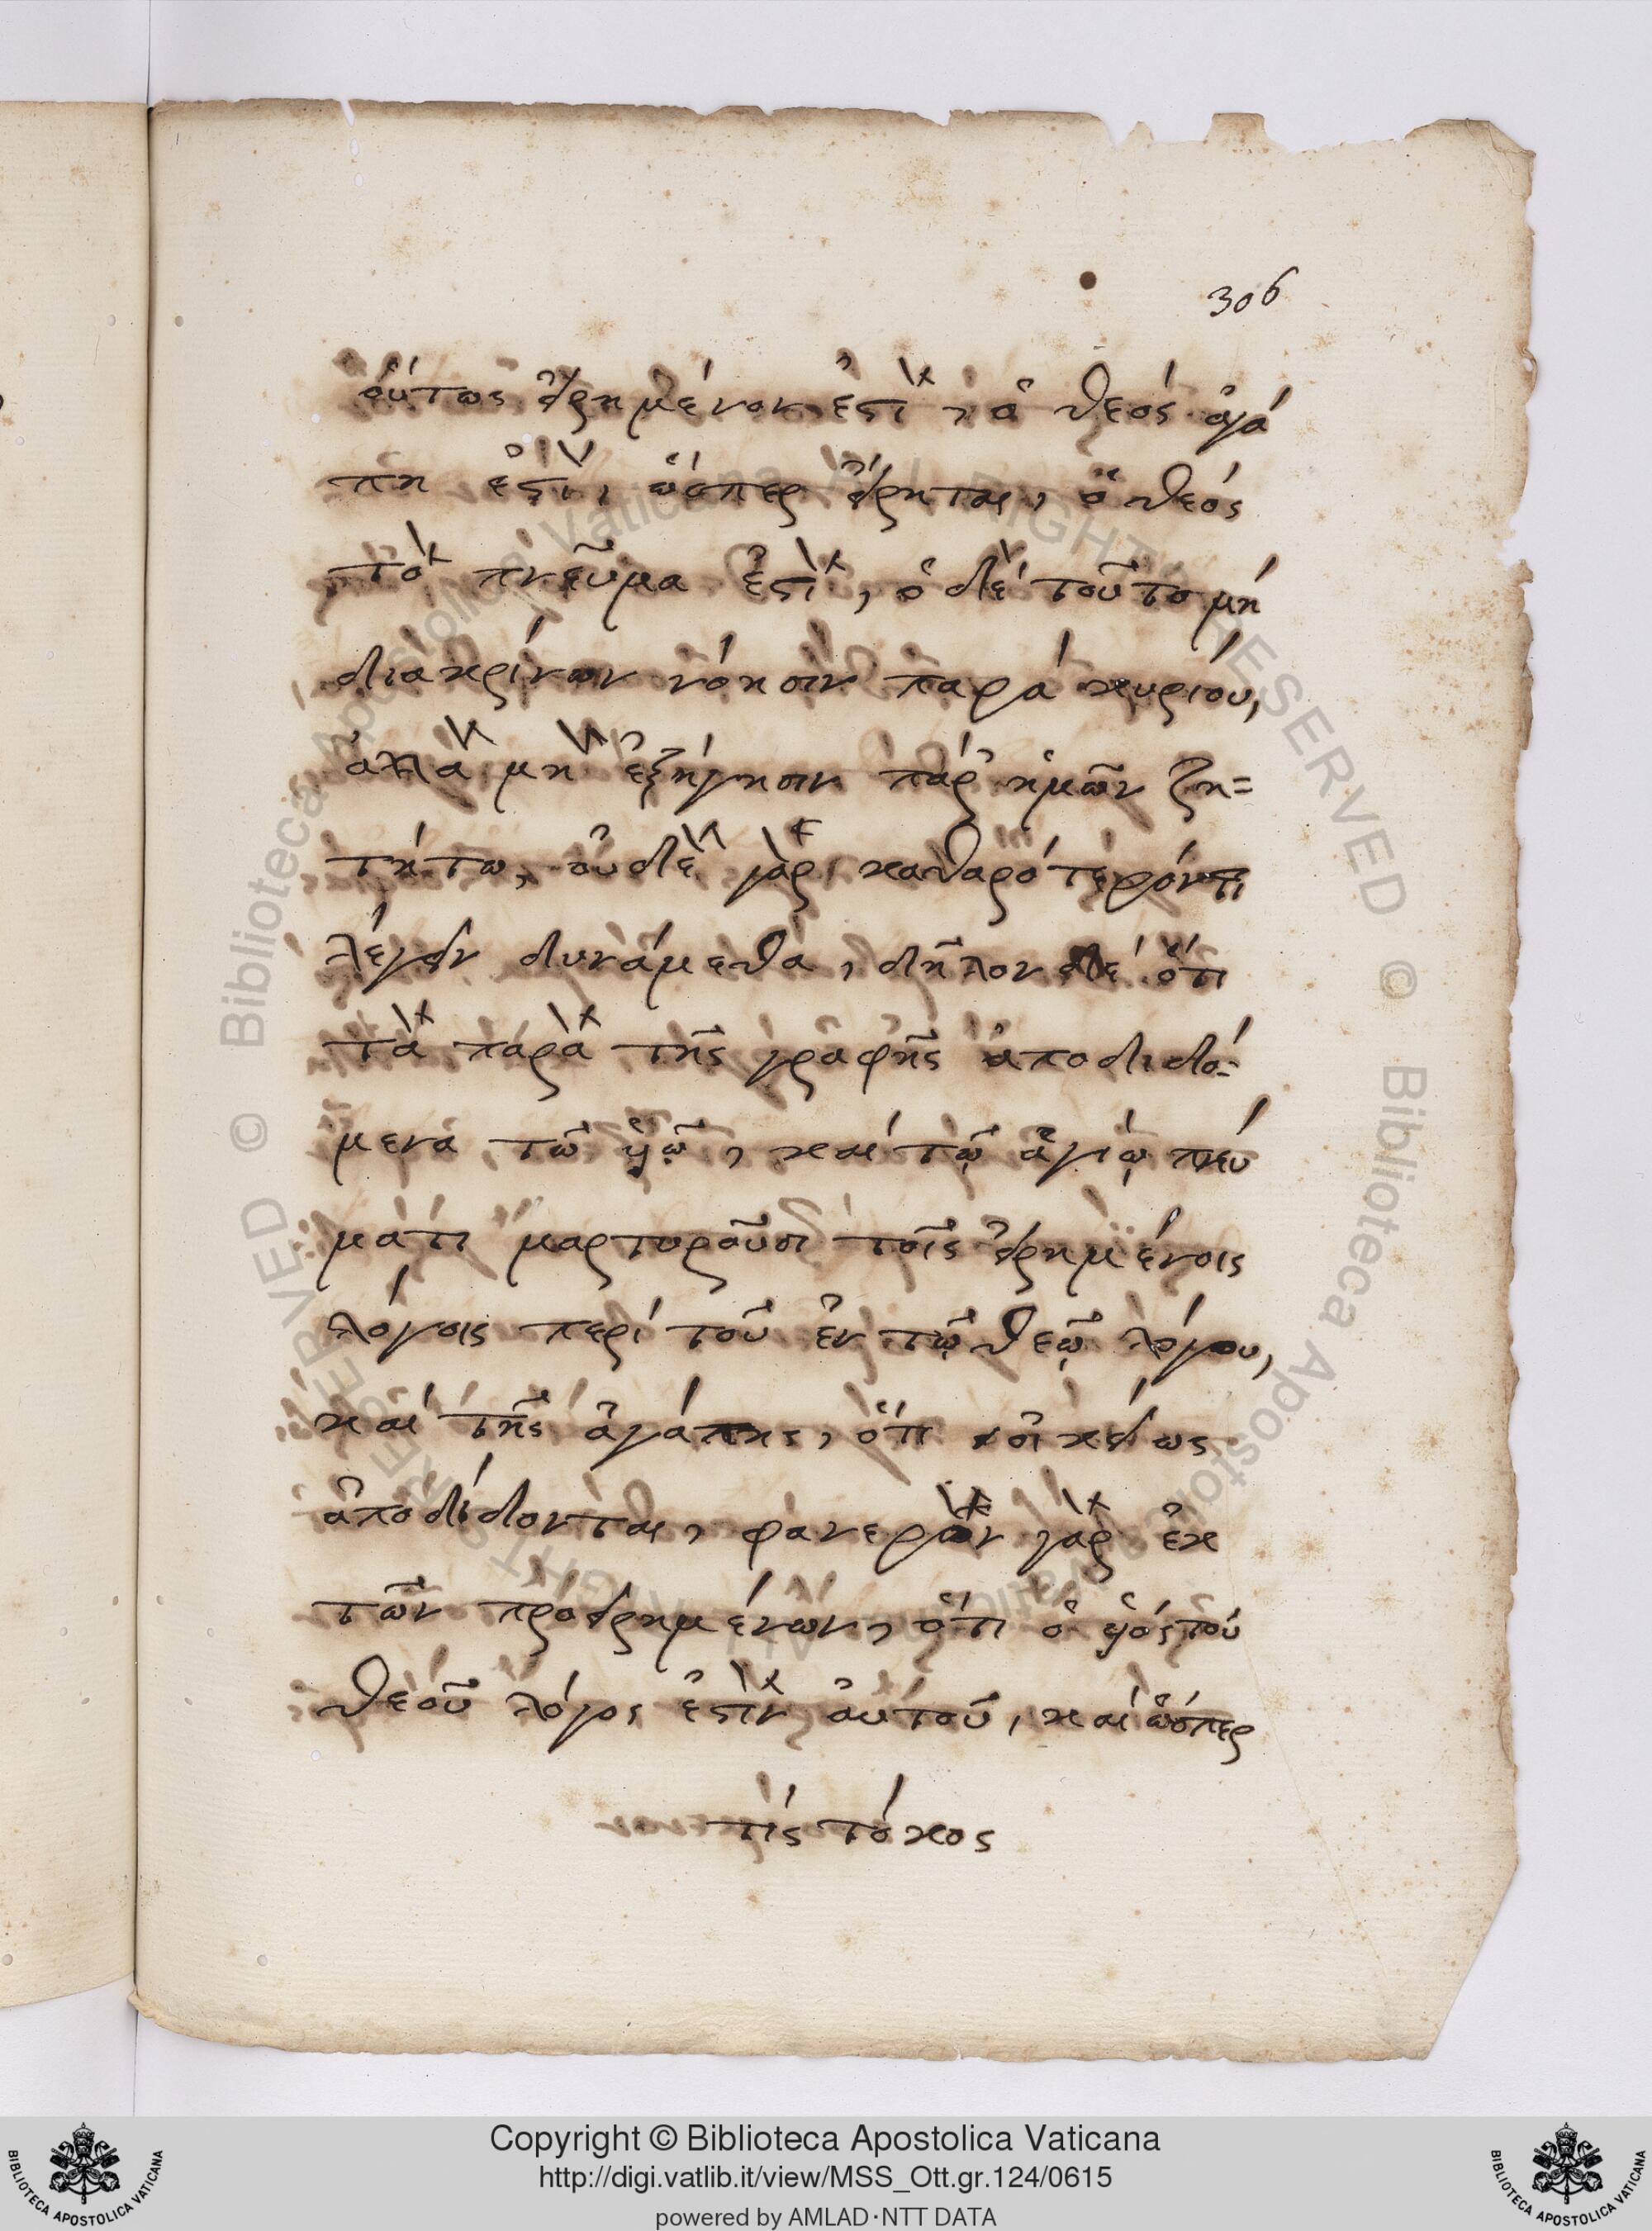 306
οὕτως εἰρημένον ἐστὶ, ὁ θεός ἀγά
πη ἐστὶ, ὥσπερ εἴρηται, ὁ θεός
τὸ πνεῦμα ἐστὶ, ὁ δέ τοῦτο μή
διακρίνων νόησιν παρά κυρίου,
ἀλλὰ μὴ ἐξήγησιν παρ' ἡμῶν ζη=
τήτω, οὐδὲ γὰρ καθαρότερόν τι
λέγειν δυνάμεθα, δῆλον δέ ὅτι
τὰ παρὰ τῆς γραφῆς ἀποδιδό-
μενα τῶ υἱῶ, καί τῷ ἁγίῳ πνεύ
ματι μαρτυροῦσι τοῖς εἰρημένοις
λόγοις περί τοῦ ἐν τῷ θεῷ λόγου,
καί τῆς ἀγάπης, ὅτι οἰκείως
ἀποδίδονται, φανερὸν γὰρ ἐκ
τῶν προειρημένων, ὅτι ὁ υἱός τοῦ
θεοῦ λόγος ἐστὶν αὐτοῦ, καί ὥσπερ
τίς τόκος
© Biblioteca Apostolica Vaticana ALL RIGHTS RESERVED
Copyright © Biblioteca Apostolica Vaticana
http://digi.vatlib.it/view/MSS_Ott.gr.124/0615
powered by AMLAD·NTT DATA
BIBLIOTECA APOSTOLICA VATICANA
BIBLIOTECA APOSTOLICA VATICANA